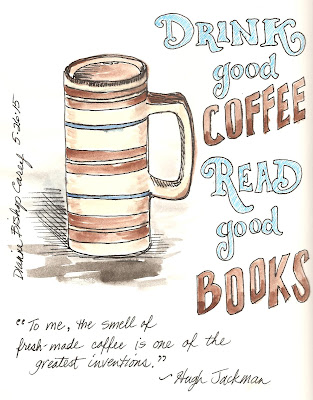 DRINK
good
COFFEE
READ
good
BOOKS
Dianne Bishop Carey 5-26-15
"To me, the smell of
fresh-made coffee is one of the
greatest inventions."
~Hugh Jackman